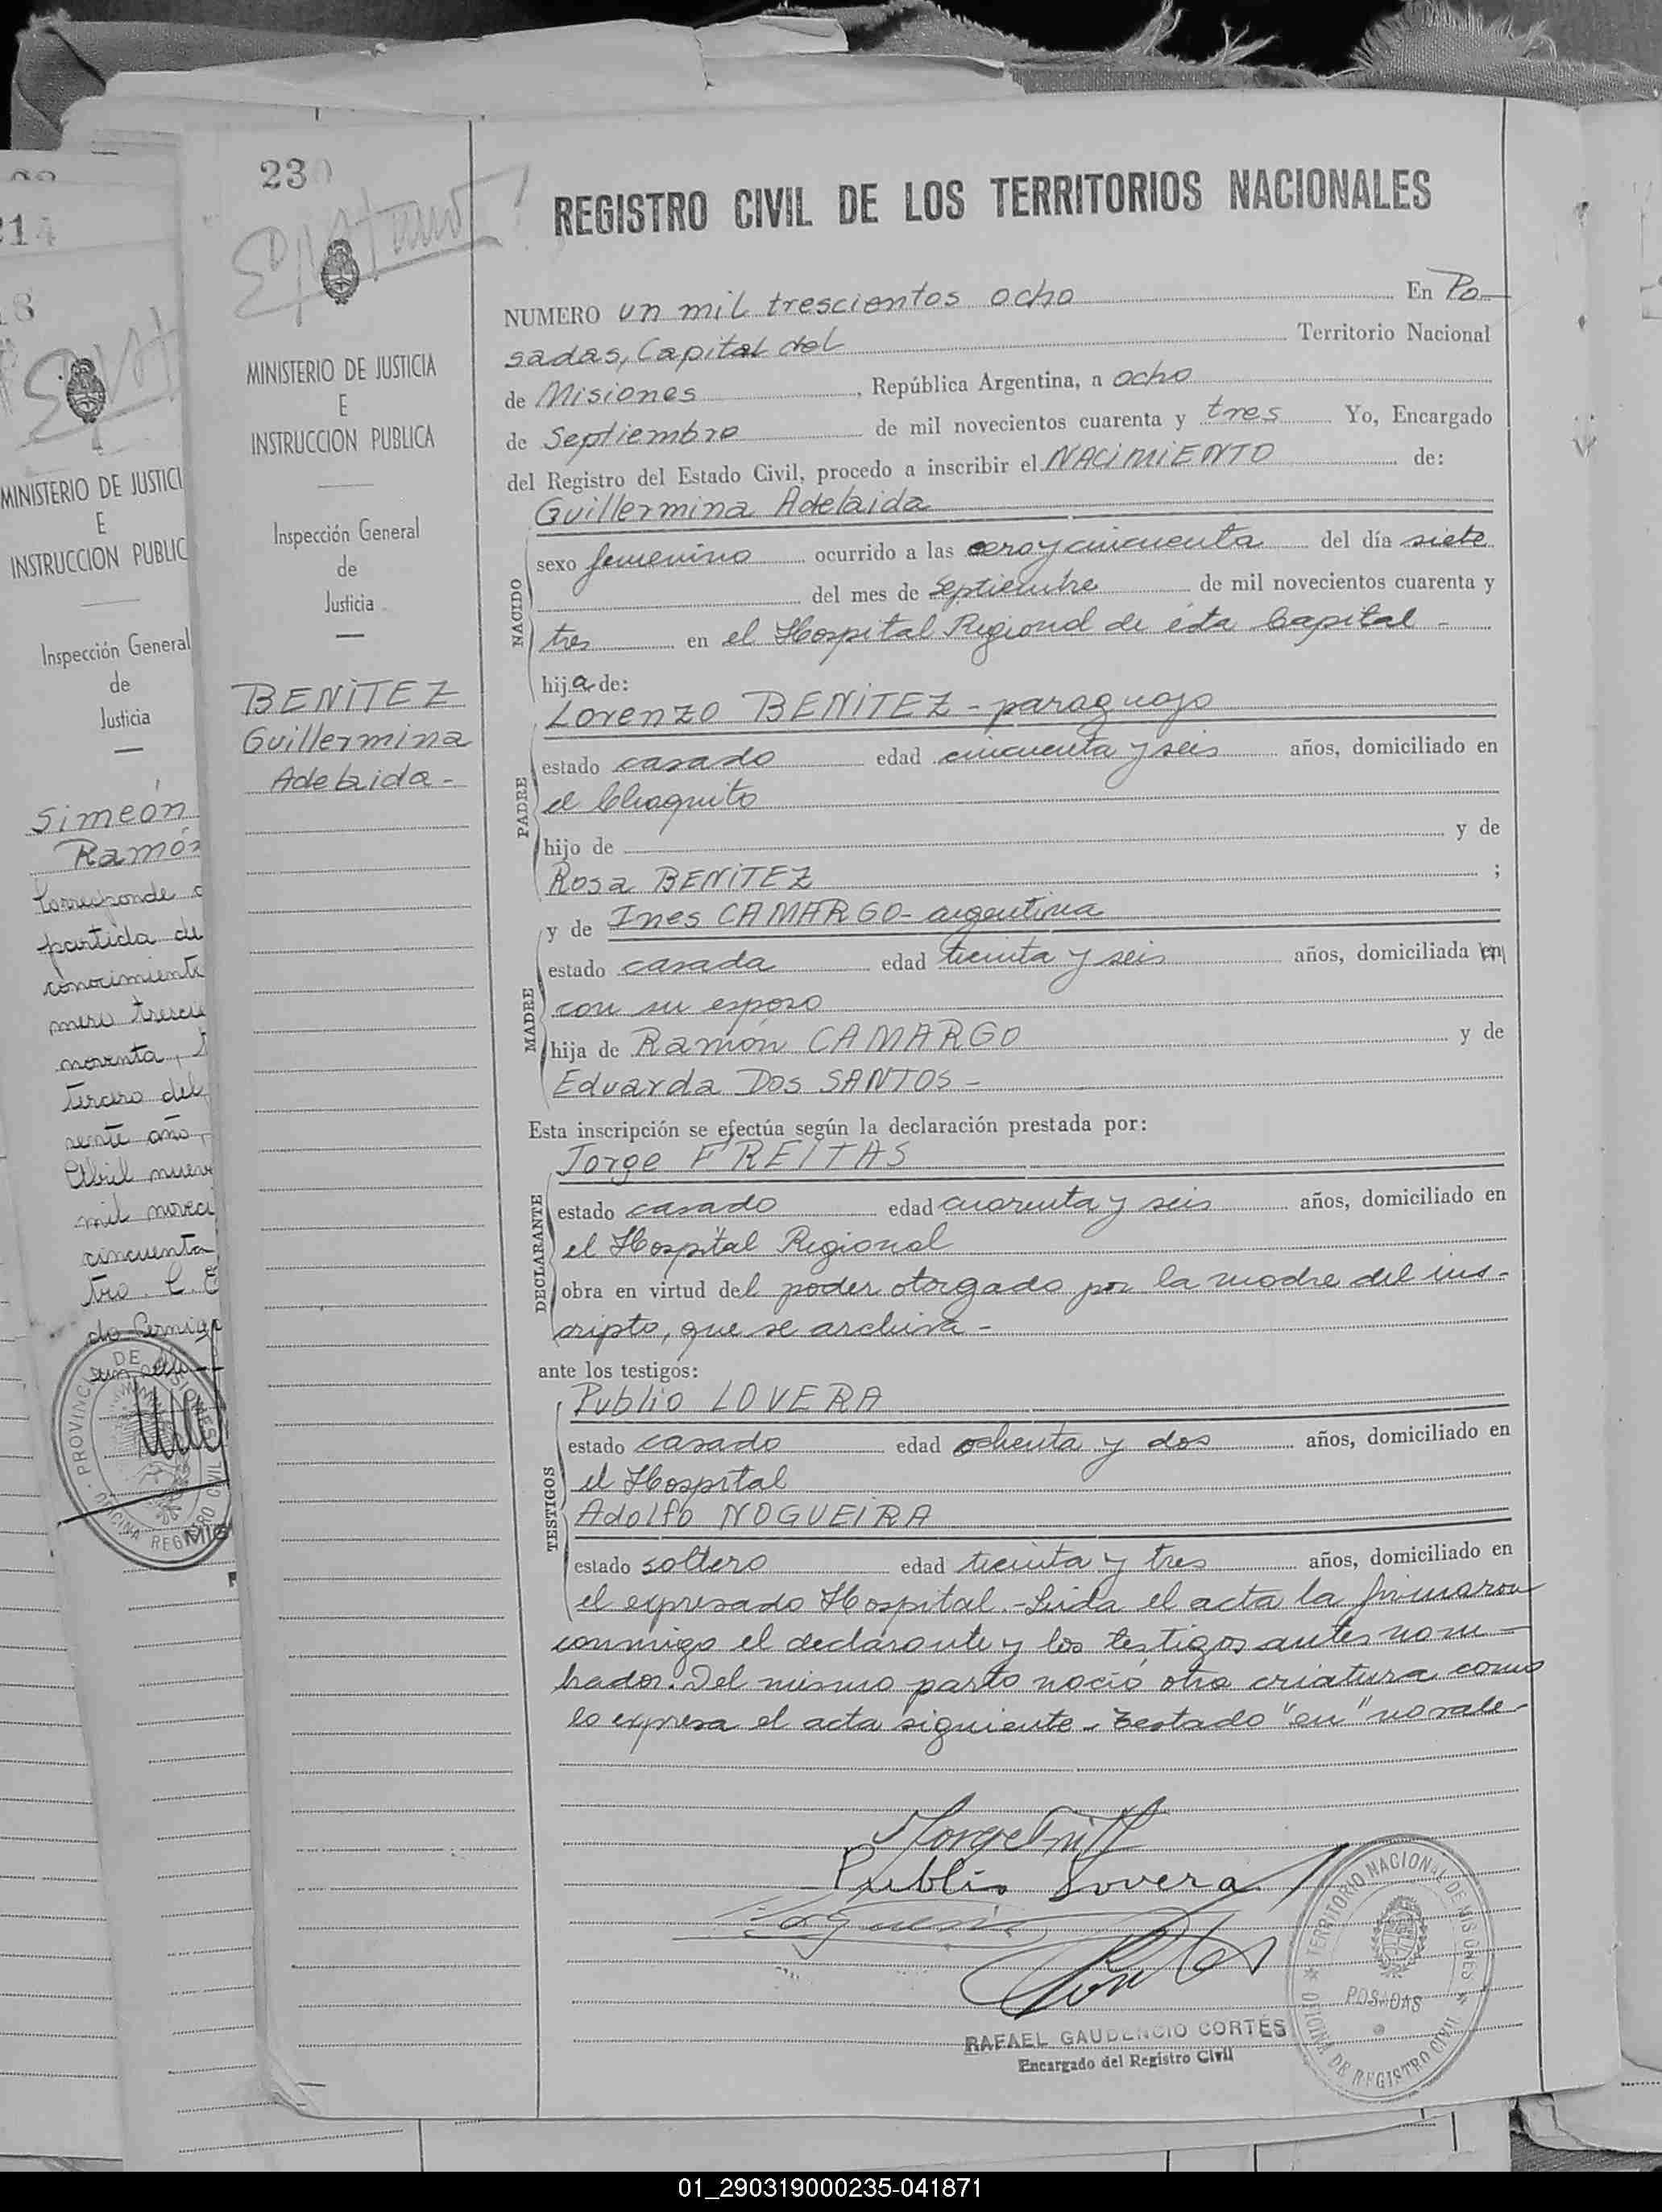 214
18
MINISTERIO DE JUSTICI
E
INSTRUCCION PUBLIC
Inspección General
de
Justicia
Simeón
Ramón
Corresponde a
partida de
conocimiento
mero trescie
noventa,
tercero del
sente año,
Abril nueve
mil noveci
cincuenta
tro. C. E
PROVINCIA DE MISIONES
OFICINA REGISTRO CIVIL
230
MINISTERIO DE JUSTICIA
E
INSTRUCCION PUBLICA
Inspección General
de
Justicia
BENITEZ
Guillermina
Adelaida-
REGISTRO CIVIL DE LOS TERRITORIOS NACIONALES
NUMERO un mil trescientos ocho En Po-
sadas, Capital del Territorio Nacional
de Misiones, República Argentina, a ocho
de Septiembre de mil novecientos cuarenta y tres Yo, Encargado
del Registro del Estado Civil, procedo a inscribir el NACIMIENTO de:
Guillermina Adelaida
NACIDO
sexo femenino ocurrido a las cero y cincuenta del día siete
del mes de Septiembre de mil novecientos cuarenta y
tres en el Hospital Regional de ésta Capital -
hija de:
Lorenzo BENITEZ - paraguayo
PADRE
estado casado edad cincuenta y seis años, domiciliado en
el Chaquito
hijo de y de
Rosa BENITEZ ;
y de Ines CAMARGO- argentina
MADRE
estado casada edad treinta y seis años, domiciliada en
con su esposo
hija de Ramón CAMARGO y de
Eduarda DOS SANTOS -
Esta inscripción se efectúa según la declaración prestada por:
Jorge FREITAS
DECLARANTE
estado casado edad cuarenta y seis años, domiciliado en
el Hospital Regional
obra en virtud del poder otorgado por la madre del ins-
cripto, que se archiva -
ante los testigos:
Publio LOVERA
TESTIGOS
estado casado edad ochenta y dos años, domiciliado en
el Hospital
Adolfo NOGUEIRA
estado soltero edad treinta y tres años, domiciliado en
el expresado Hospital.- Leida el acta la firmaron
conmigo el declarante y los testigos antes nom-
brados. Del mismo parto nació otra criatura como
lo expresa el acta siguiente - Testado "en" no vale-
Publio Lovera
RAFAEL GAUDENCIO CORTÉS
Encargado del Registro Civil
TERRITORIO NACIONAL DE MISIONES
POSADAS
OFICINA DE REGISTRO CIVIL
01_290319000235-041871